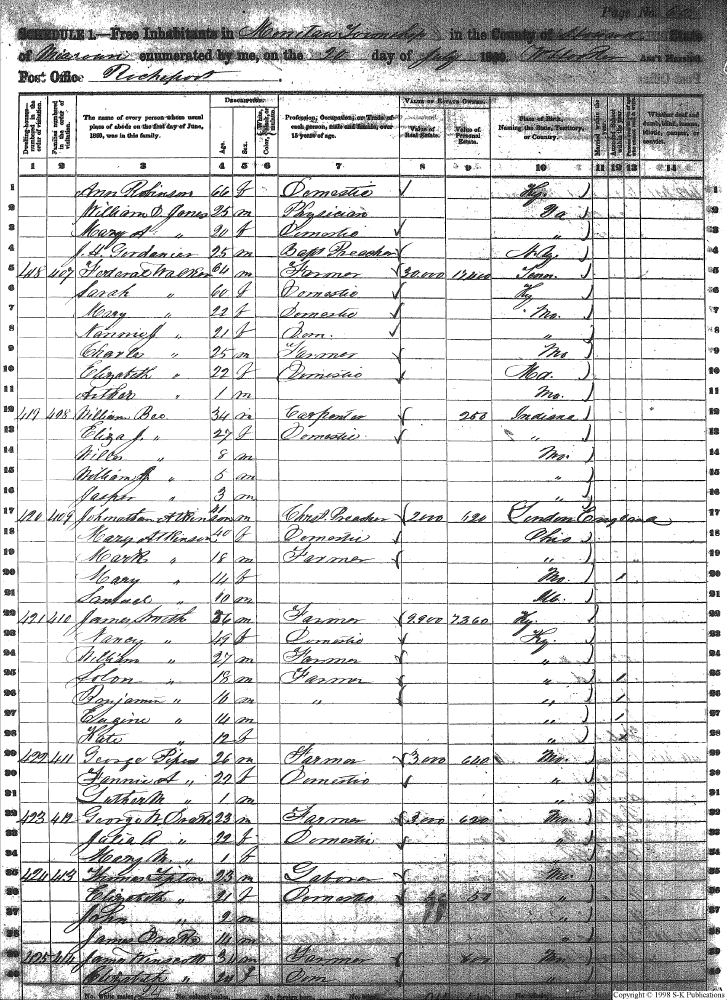 Page No.
SCHEDULE 1.—Free Inhabitants in Township in the County of Howard State
of Missouri enumerated by me, on the 20 day of July 1860. Ass't Marshal
Post Office Rocheport.
Dwelling-houses— numbered in the order of visitation. Families numbered in the order of visitation. The name of every person whose usual place of abode on the first day of June, 1860, was in this family. DESCRIPTION. Age. Sex. Color, Profession, Occupation, or Trade of each person, male and female, over 15 years of age. VALUE OF ESTATE OWNED. Value of Real Estate. Value of Personal Estate. Place of Birth, Naming the State, Territory, or Country. Married within the year. Attended School within the year. Whether deaf and dumb, blind, insane, idiotic, pauper, or convict.
1 2 3 4 5 6 7 8 9 10 11 12 13 14
1 Ann Robinson 66 f Domestic Ky. 1
2 William D. Jones 25 m Physician 2
3 Mary A " 20 f Domestic " 3
4 25 m Bapt Preacher N.Y. 4
5 407 Walker m Farmer 30,000 Tenn. 5
6 Sarah " 60 f Domestic Ky 6
7 Mary " 22 f Domestic Mo. 7
8 Nannie " 21 f Dom. " 8
9 Charles " 25 m Farmer Mo 9
10 Elizabeth " 22 f Domestic Md. 10
11 Arthur " 1 m Mo. 11
12 419 408 William Bee 34 m Carpenter 250 Indiana 12
13 Eliza J. " 27 f Domestic " 13
14 " 8 m Mo. 14
15 William " 5 m " 15
16 Jasper " 3 m " 16
17 420 409 Johnathan Atkinson 41 m Christ. Preacher 2000 620 London England 17
18 Mary Atkinson 40 f Domestic Ohio 18
19 Mark " 18 m Farmer " 19
20 Mary " 14 f Mo. 1 20
21 Samuel " 10 m Mo. 21
22 421 410 James Smith 56 m Farmer 7360 Ky. 22
23 Nancy " 49 f Domestic Ky. 23
24 William " 27 m Farmer " 24
25 Solon " 18 m Farmer " 1 25
26 Benjamin " 16 m " " 1 26
27 Eugene " 14 m " 1 27
28 Kate " 12 f " 28
29 422 411 George Pipes 26 m Farmer 3,000 640 Mo. 29
30 Fannie A " 22 f Domestic " 30
31 Luther M " 1 m " 31
32 423 412 George W. Drake 23 m Farmer 3,000 620 Mo 32
33 Julia A " 22 f Domestic " 33
34 Mary M. " 1 f " 34
35 424 413 Tipton 23 m Laborer Mo. 35
36 Elizabeth " 21 f Domestic 50 " 36
37 John " 2 m " 37
38 James Drake 14 m " 38
39 425 414 James Winscott 34 m Farmer 600 Mo 39
40 Elizabeth " 24 f Dom " 40
No. white males,
Copyright © 1998 S-K Publications